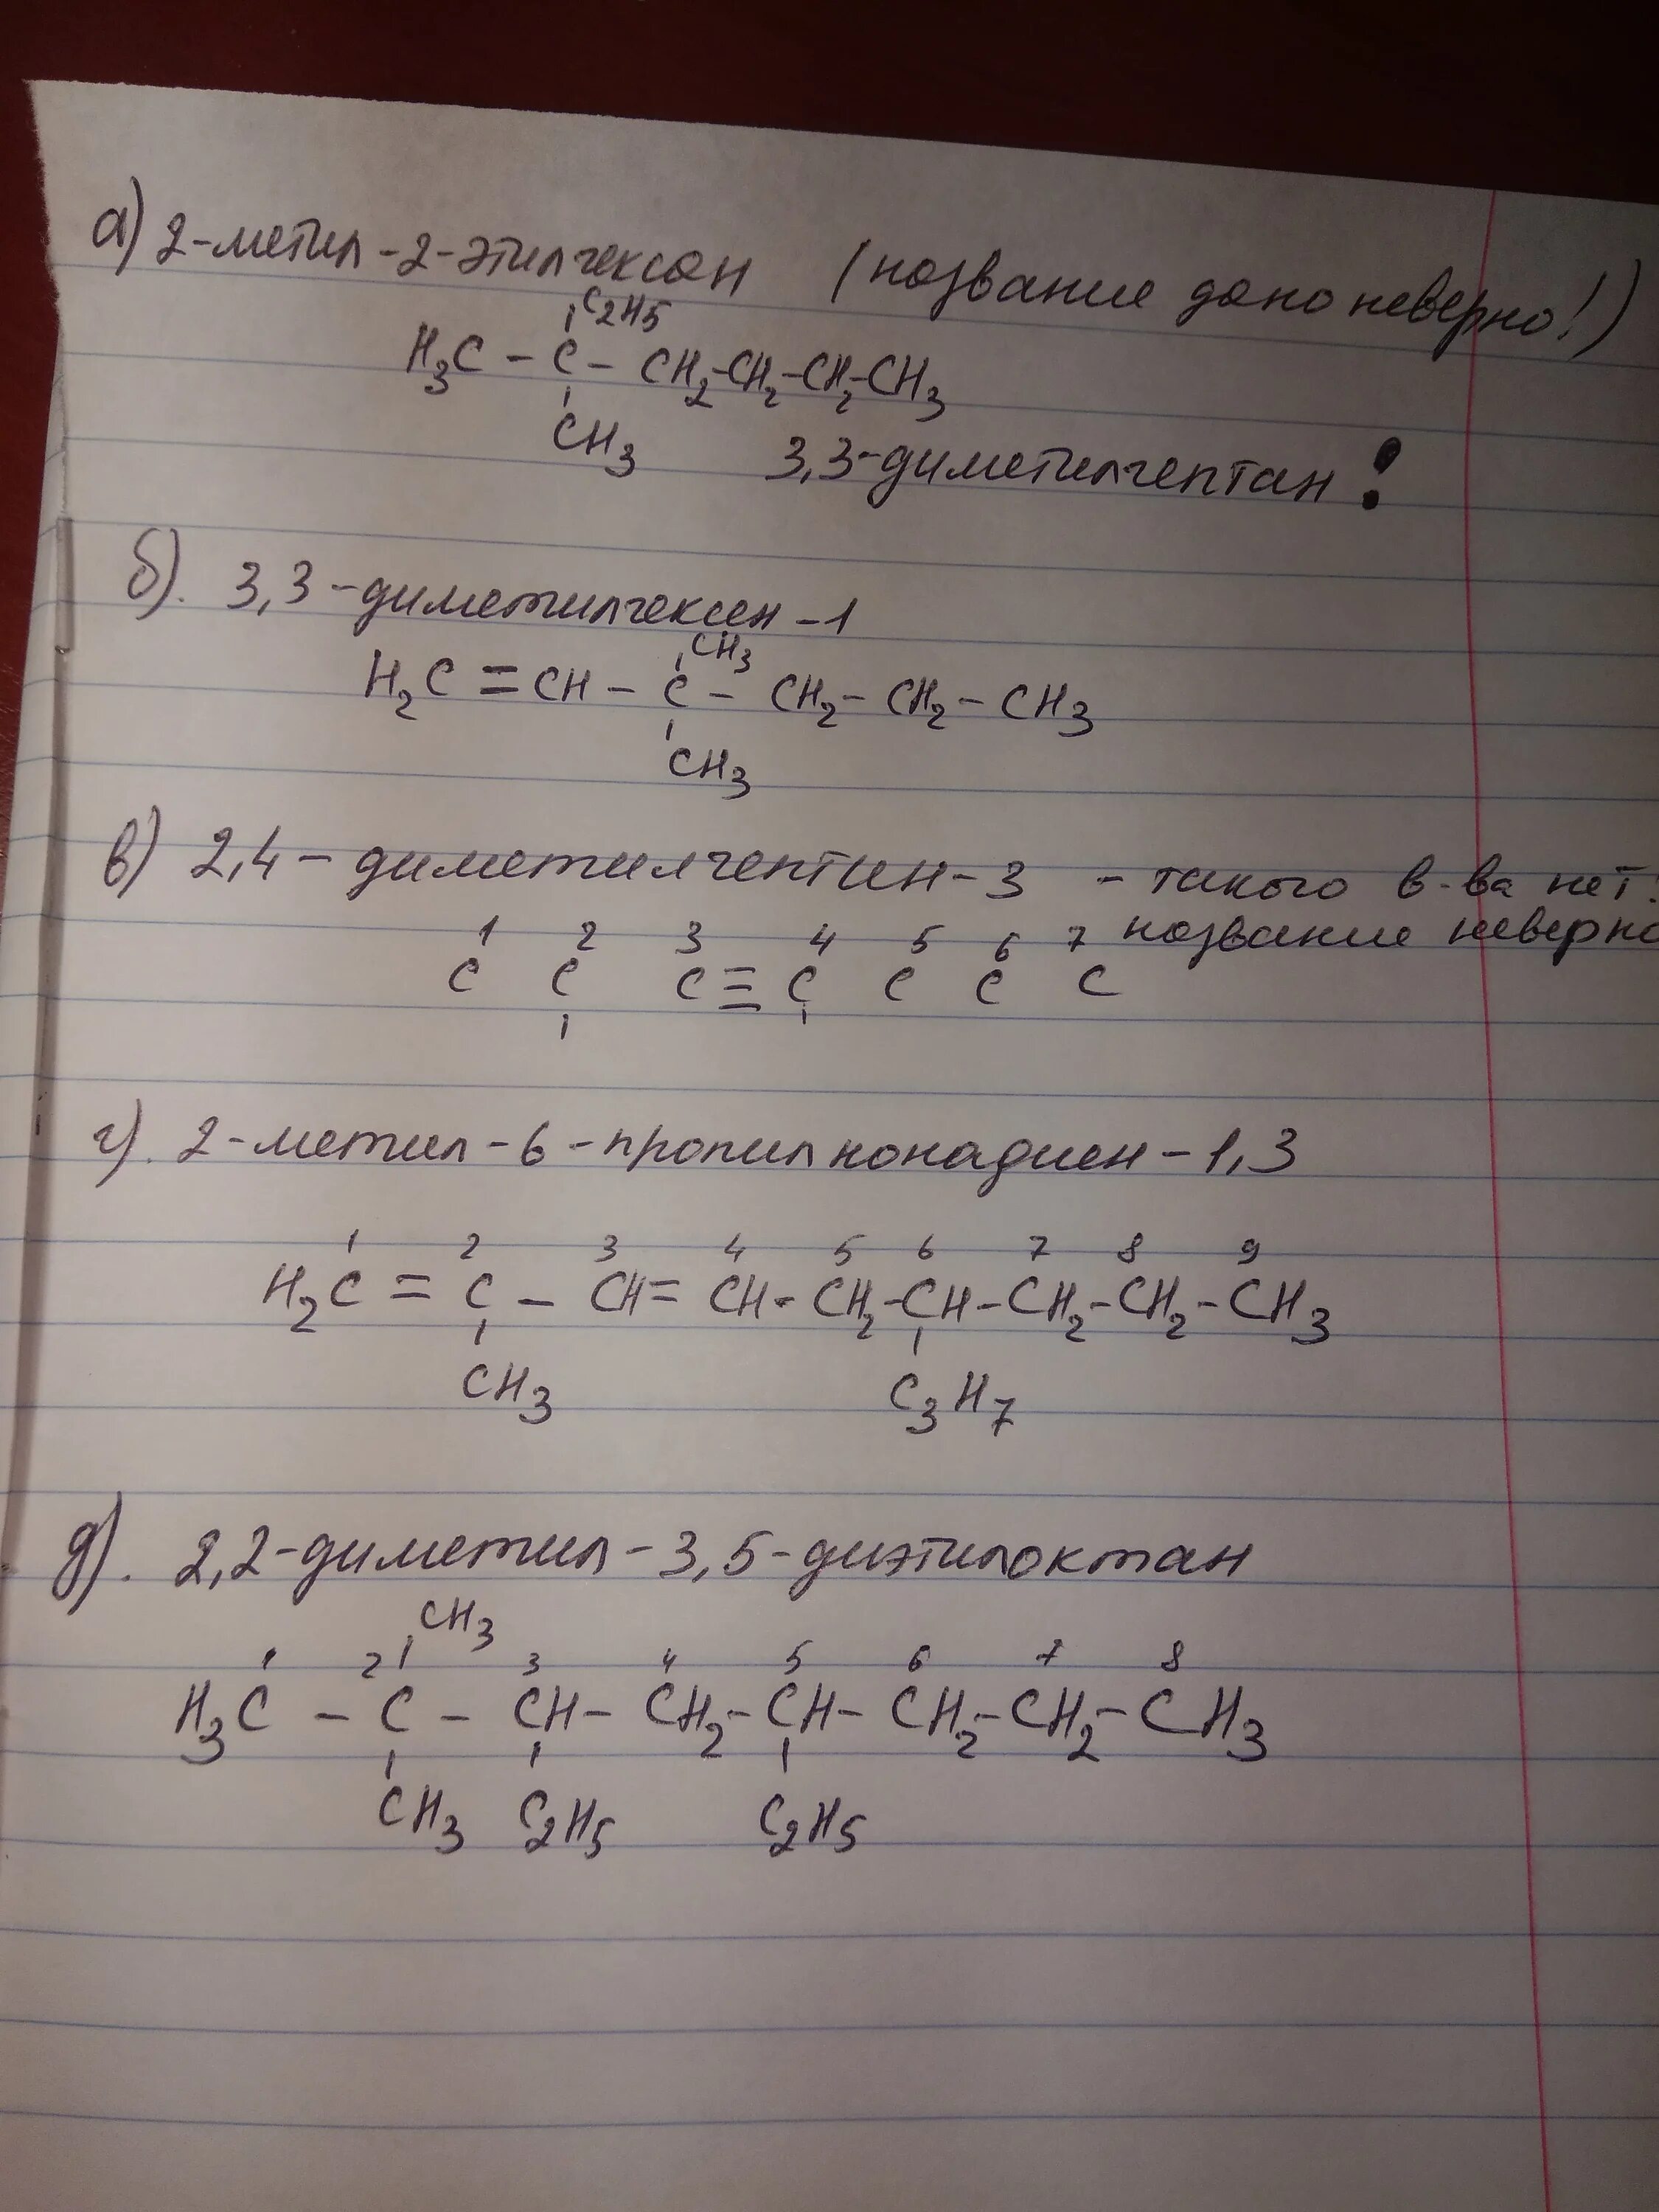 а) 2-метил-2-этилгексан (название дано неверно!)
C2H5
H3C - C - CH2-CH2-CH2-CH3
CH3 3,3-диметилгептан !
б). 3,3-диметилгексен-1
CH3
H2C = CH - C - CH2 - CH2 - CH3
CH3
в) 2,4-диметилгептин-3 - такого в-ва нет.
1 2 3 4 5 6 7 название неверно
C C C ≡ C C C C
г). 2-метил-6-пропилнонадиен-1,3
1 2 3 4 5 6 7 8 9
H2C = C - CH = CH - CH2 - CH - CH2 - CH2 - CH3
CH3 C3H7
д). 2,2-диметил-3,5-диэтилоктан
CH3
1 2 3 4 5 6 7 8
H3C - C - CH - CH2 - CH - CH2 - CH2 - CH3
CH3 C2H5 C2H5